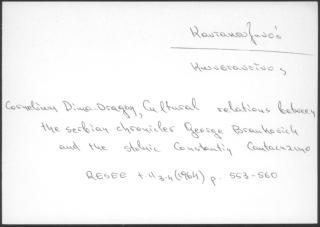 Καντακουζηνός
Κωνσταντίνος
Corneliu Dima Dragan, Cultural relations between
the serbian chronicler George Brankovich
and the stolnic Constantin Cantacuzino
RESEE t. II 3-4 (1964) p. 553-560